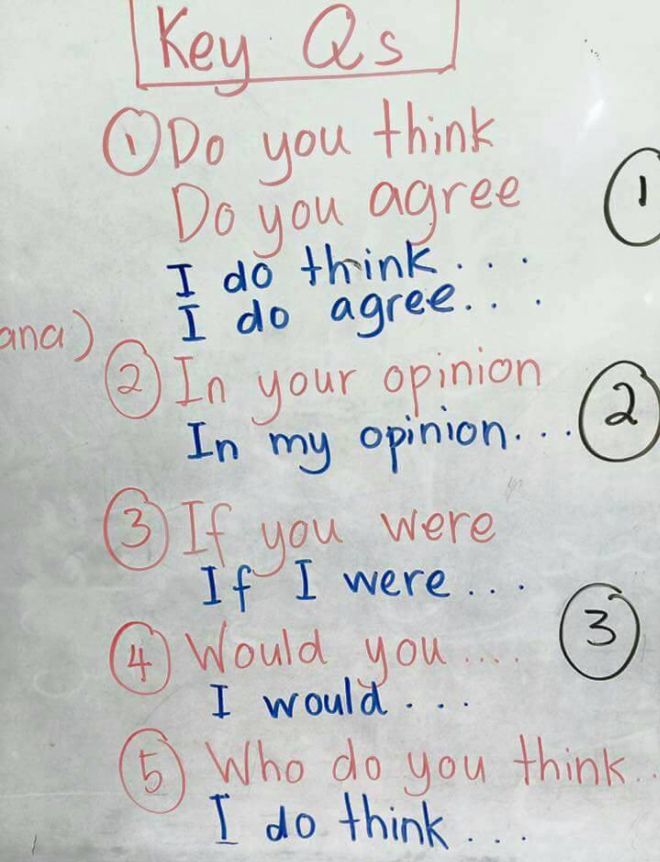 Key Qs
① Do you think
Do you agree
1
I do think...
I do agree...
ana)
② In your opinion
2
In my opinion...
③ If you were
If I were...
3
④ Would you....
I would...
⑤ Who do you think..
I do think...